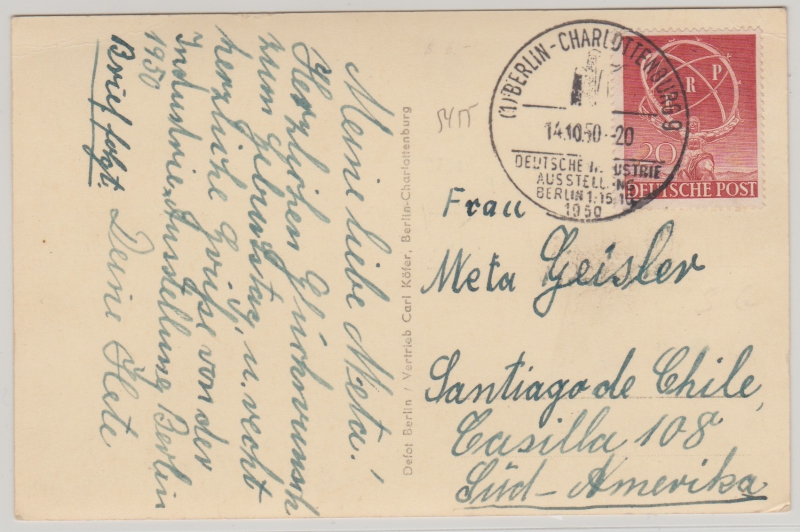 Meine liebe Meta!
Herzlichen Glückwunsch
zum Geburtstag u. recht
herzliche Grüße von der
Industrie-Ausstellung Berlin
1950
Brief folgt. Deine Hete
Defot Berlin / Vertrieb Carl Köfer, Berlin-Charlottenburg
(1) BERLIN-CHARLOTTENBURG 9
14.10.50.-20
DEUTSCHE INDUSTRIE
AUSSTELLUNG
BERLIN 1.-15.10.
1950
ERP
20
DEUTSCHE POST
Frau
Meta Geisler
Santiago de Chile,
Casilla 108
Süd-Amerika